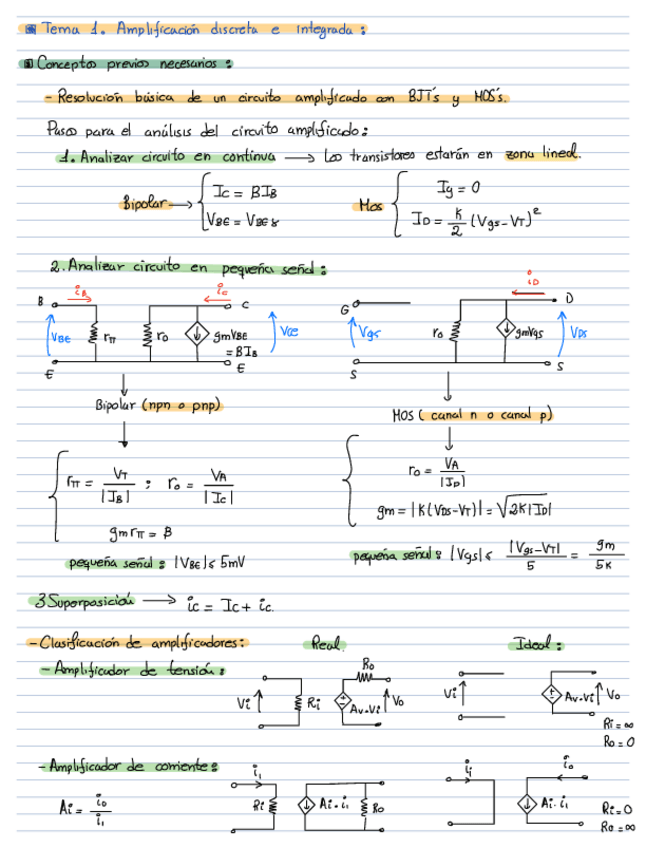 Tema 1. Amplificación discreta e integrada:
Conceptos previos necesarios:
- Resolución básica de un circuito amplificado con BJT's y MOS's.
Pasos para el análisis del circuito amplificado:
1. Analizar circuito en continua → Los transistores estarán en zona lineal.
Bipolar → Ic = BIB
VBE = VBEγ
Mos Ig = 0
ID = K/2 (Vgs - VT)²
2. Analizar circuito en pequeña señal:
B iB iC C G iD D
VBE rπ ro gmVBE = BIB VCE Vgs ro gmVgs VDS
E E S S
Bipolar (npn o pnp)
MOS (canal n o canal p)
rπ = VT/|IB| ; ro = VA/|Ic|
gm rπ = β
ro = VA/|ID|
gm = |K(VDS-VT)| = √2K|ID|
pequeña señal: |VBE| ≤ 5mV
pequeña señal: |Vgs| ≤ |Vgs-VT|/5 = gm/5K
3 Superposición → ic = Ic + ic.
- Clasificación de amplificadores: Real. Ideal:
- Amplificador de tensión:
Vi Ri Av·Vi Ro Vo
Vi Av·Vi Vo
Ri = ∞
Ro = 0
- Amplificador de corriente:
Ai = io/i1
i1 Ri Ai·i1 Ro
ii Ai·i1 io
Ri = 0
Ro = ∞